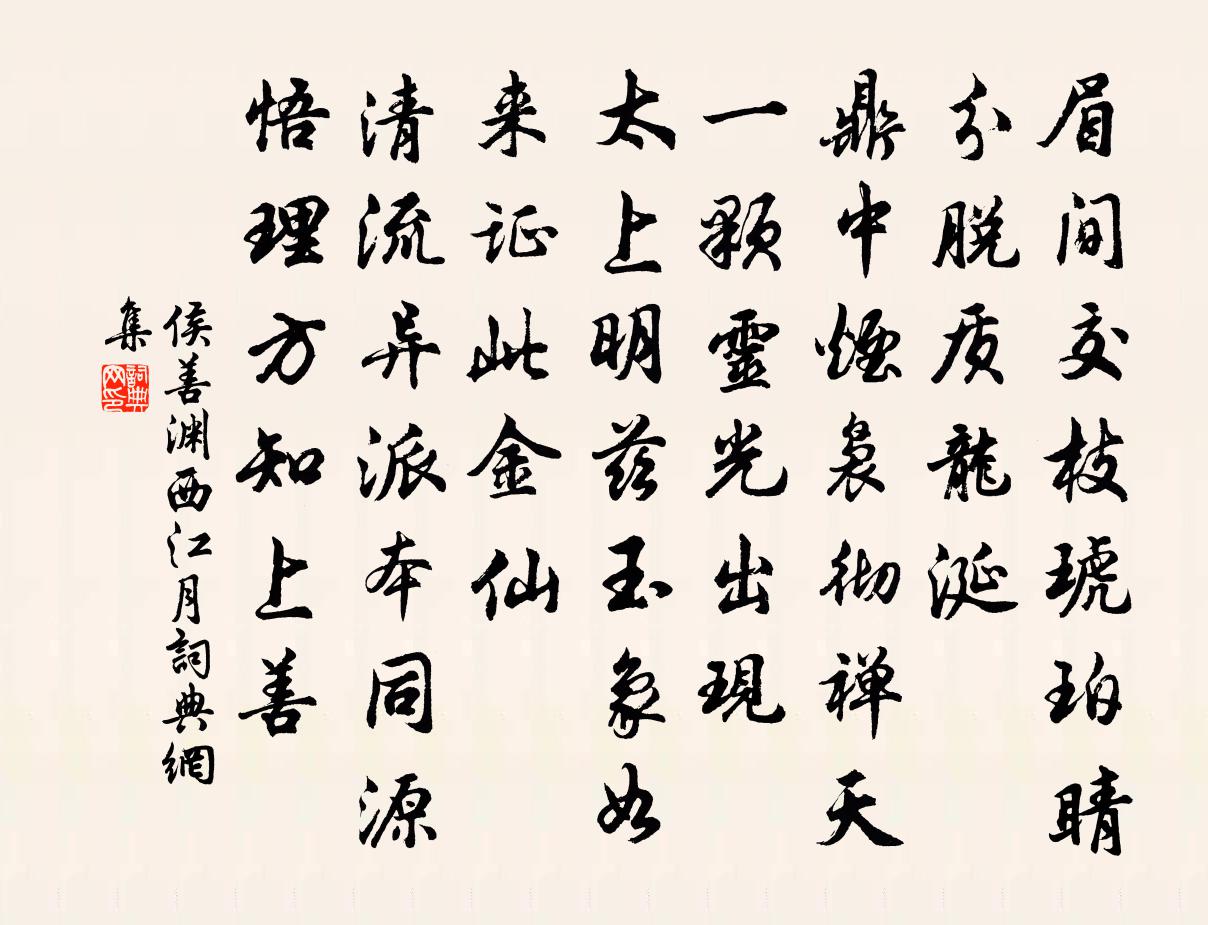 眉间交枝琥珀睛
分脱质龍涎
鼎中煙袅彻禅天
一颗靈光出現
太上明兹玉象如
来证此金仙
清流异派本同源
悟理方知上善
侯善渊西江月詞典網
集
詞典網印